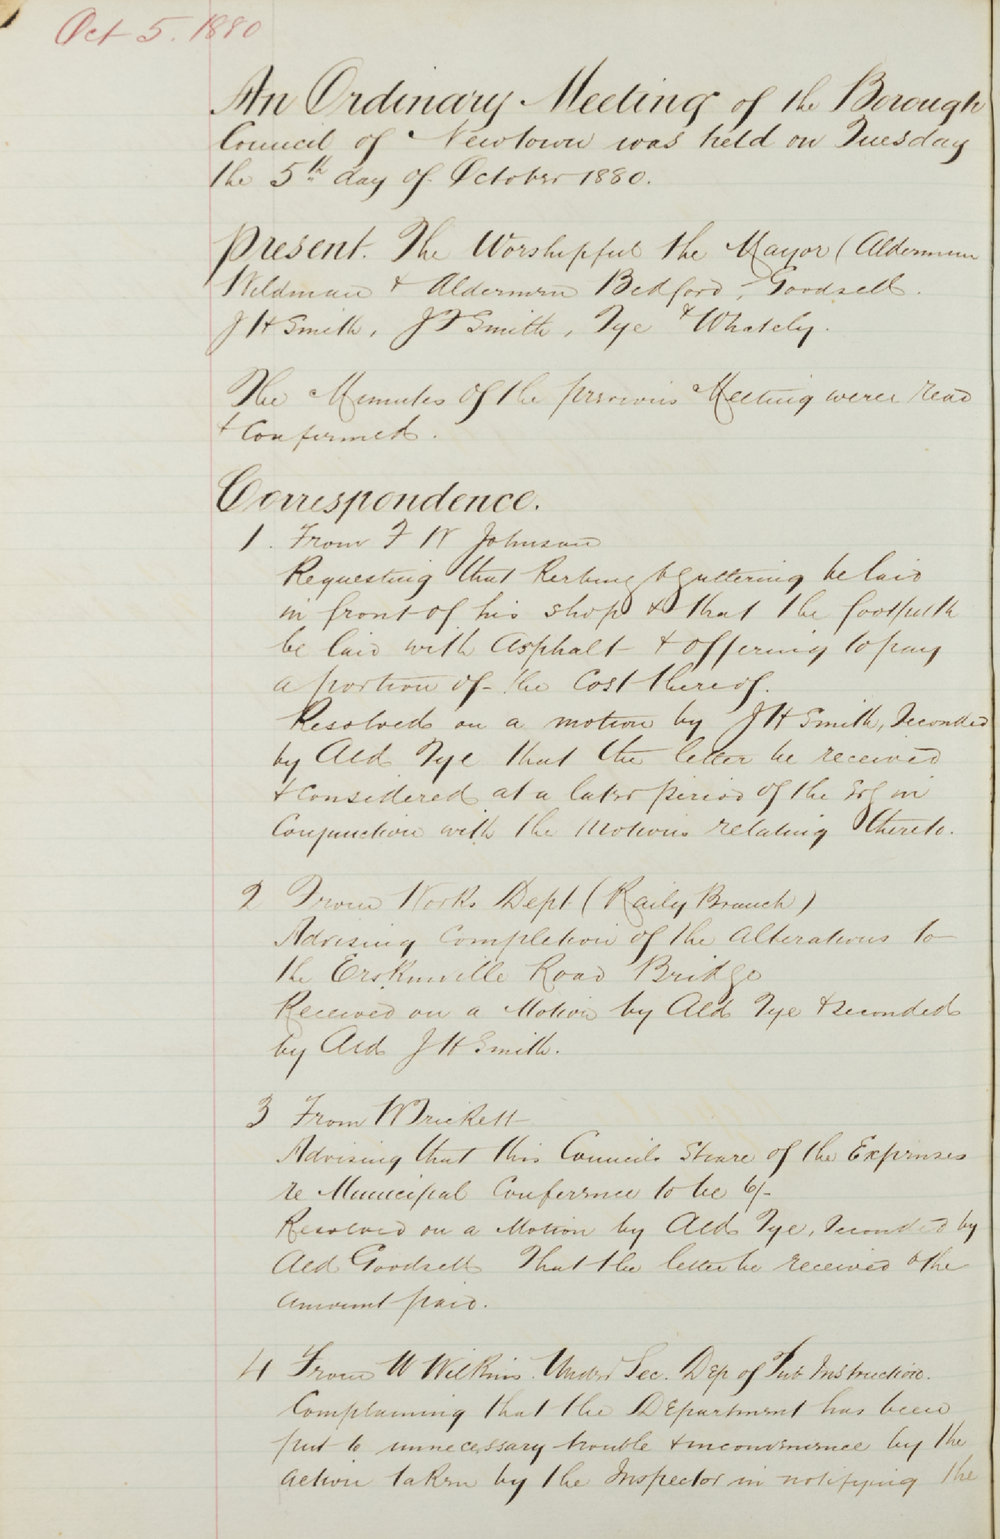 Oct 5. 1880
An Ordinary Meeting of the Borough
Council of Newtown was held on Tuesday
the 5th day of October 1880.
Present. The Worshipful the Mayor (Alderman
Wildman & Aldermen Bedford, Goodsell.
J H Smith, J F Smith, Tye & Whately.
The Minutes of the previous Meeting were read
& Confirmed.
Correspondence.
1. From F W Johnson
Requesting that Kerbing & guttering be laid
in front of his shop & that the footpath
be laid with Asphalt & offering to pay
a portion of the Cost thereof.
Resolved on a motion by J H Smith, Seconded
by Ald Tye that the letter be received
& Considered at a later period of the in
Conjunction with the Motions relating thereto.
2 From Works Dept (Raily Branch)
Advising Completion of the Alterations to
the Erskinville Road Bridge
Received on a Motion by Ald Tye & seconded
by Ald J H Smith.
3 From W Trickett
Advising that this Councils Share of the Expenses
re Municipal Conference to be 6/-
Resolved on a Motion by Ald Tye, Seconded by
Ald Goodsell That the letter be received & the
amount paid.
4 From W Wilkins. Under Sec. Dep of Pub Instruction.
Complaining that the Department has been
put to unnecessary trouble & inconvenience by the
action taken by the Inspector in notifying the